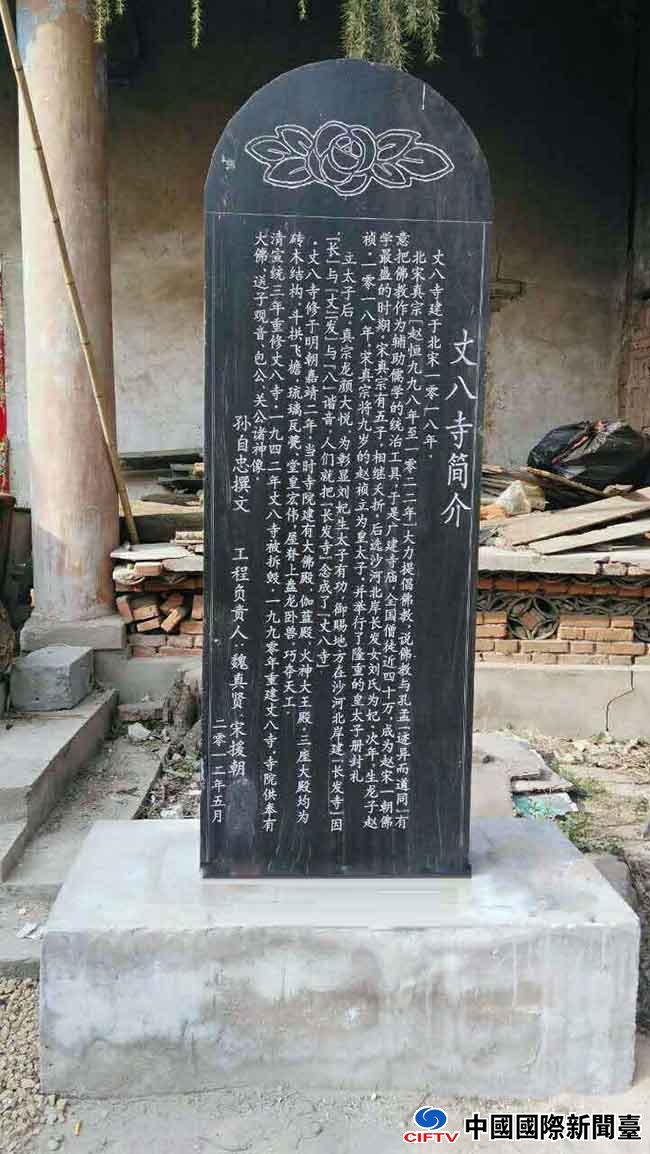 丈八寺简介
丈八寺建于北宋一〇一八年。
北宋真宗[赵恒九九八年至一〇二二年]大力提倡佛教。说佛教与孔孟“迹异而道同”有
意把佛教作为辅助儒学的统治工具。于是广建寺庙，全国僧徒近四十万，成为赵宋一朝佛
学最盛的时期。宋真宗有五子，相继夭折。后选沙河北岸长发女刘氏为妃，次年，生龙子赵
祯。一〇一八年，宋真宗将九岁的赵祯立为皇太子，并举行了隆重的皇太子册封礼
立太子后，真宗龙颜大悦，为彰显刘妃生太子有功，御赐地方在沙河北岸建[长发寺]因
[长]与[丈][发]与[八]谐音，人们就把[长发寺]念成了[丈八寺]
丈八寺修于明朝嘉靖二年，当时寺院建有大佛殿，伽蓝殿，火神大王殿，三座大殿均为
砖木结构，斗拱飞檐，琉璃瓦甍，堂皇宏伟，屋脊上盘龙卧兽，巧夺天工。
清宣统三年重修丈八寺，一九四二年丈八寺被拆毁，一九九零年重建丈八寺，寺院供奉有
大佛、送子观音、包公、关公诸神像。
孙自忠撰文 工程负责人：魏真贤、宋援朝
二零一二年五月
CIFTV 中國國際新聞臺